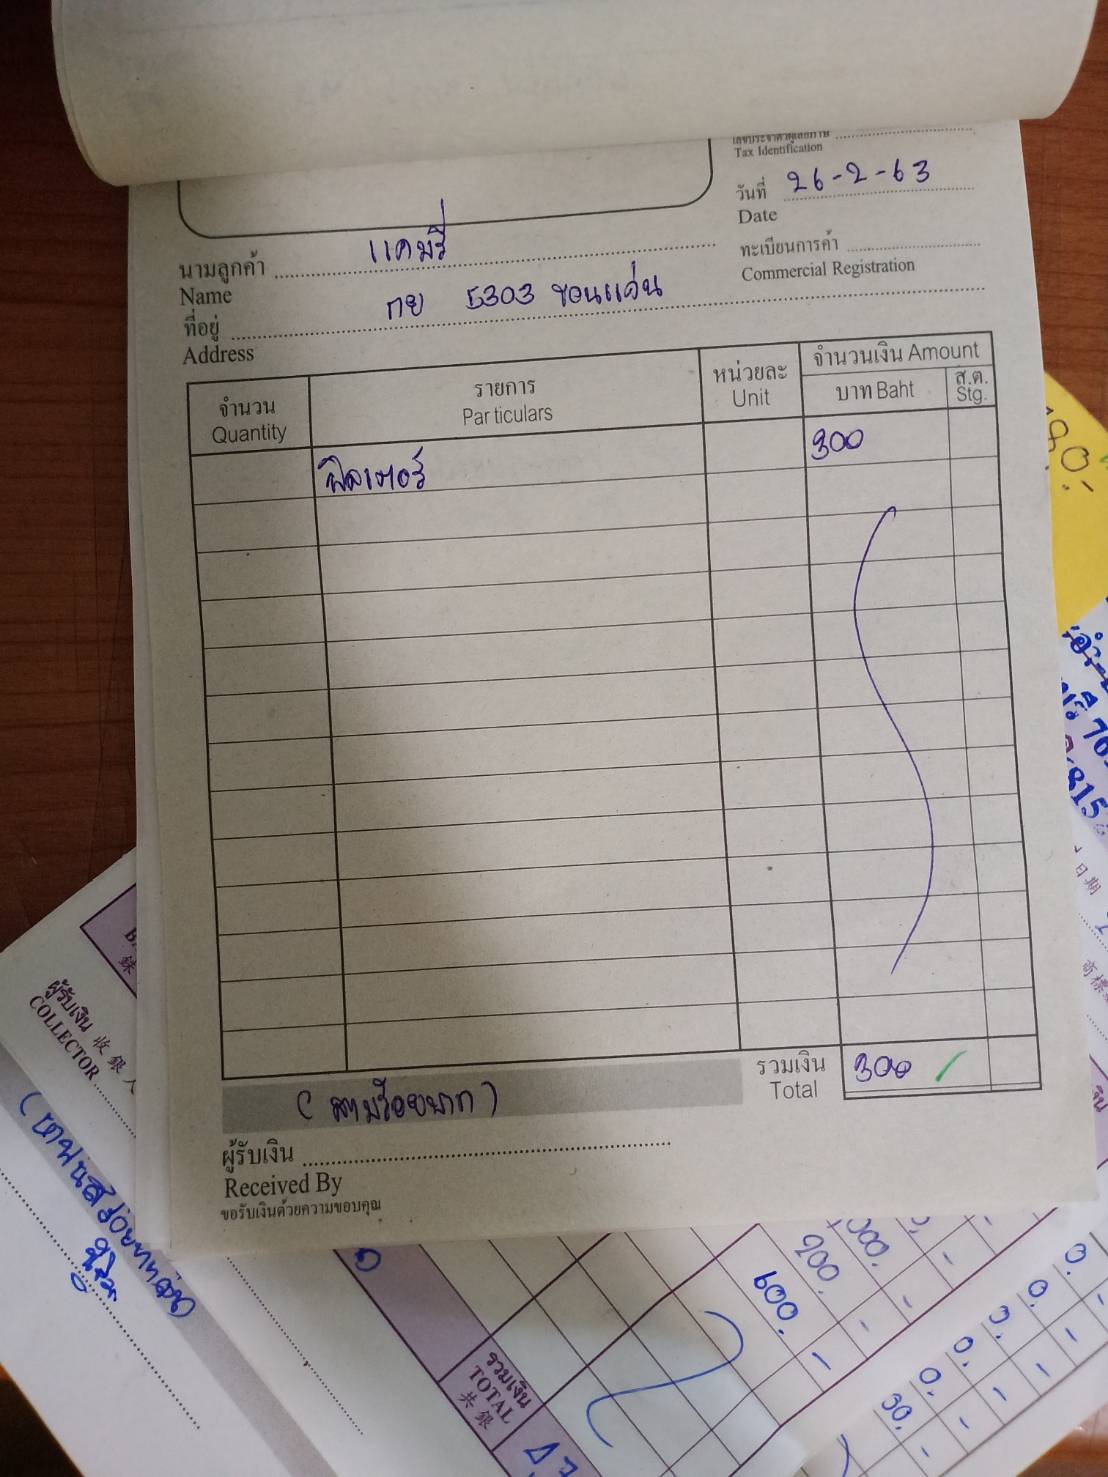 เลขประจำตัวผู้เสียภาษี
Tax Identification
วันที่ 26-2-63
Date
นามลูกค้า แคมรี่
Name
ทะเบียนการค้า
Commercial Registration
ที่อยู่ กย 5303 ขอนแก่น
Address
จำนวน รายการ หน่วยละ จำนวนเงิน Amount
Quantity Particulars Unit บาท Baht ส.ต. Stg.
ฟิลเตอร์ 300
รวมเงิน 300
Total
(สามร้อยบาท)
ผู้รับเงิน
Received By
ขอรับเงินด้วยความขอบคุณ
ผู้รับเงิน 收銀人
COLLECTOR
รวมเงิน
TOTAL
共銀
600.
200.
30.
日期
815